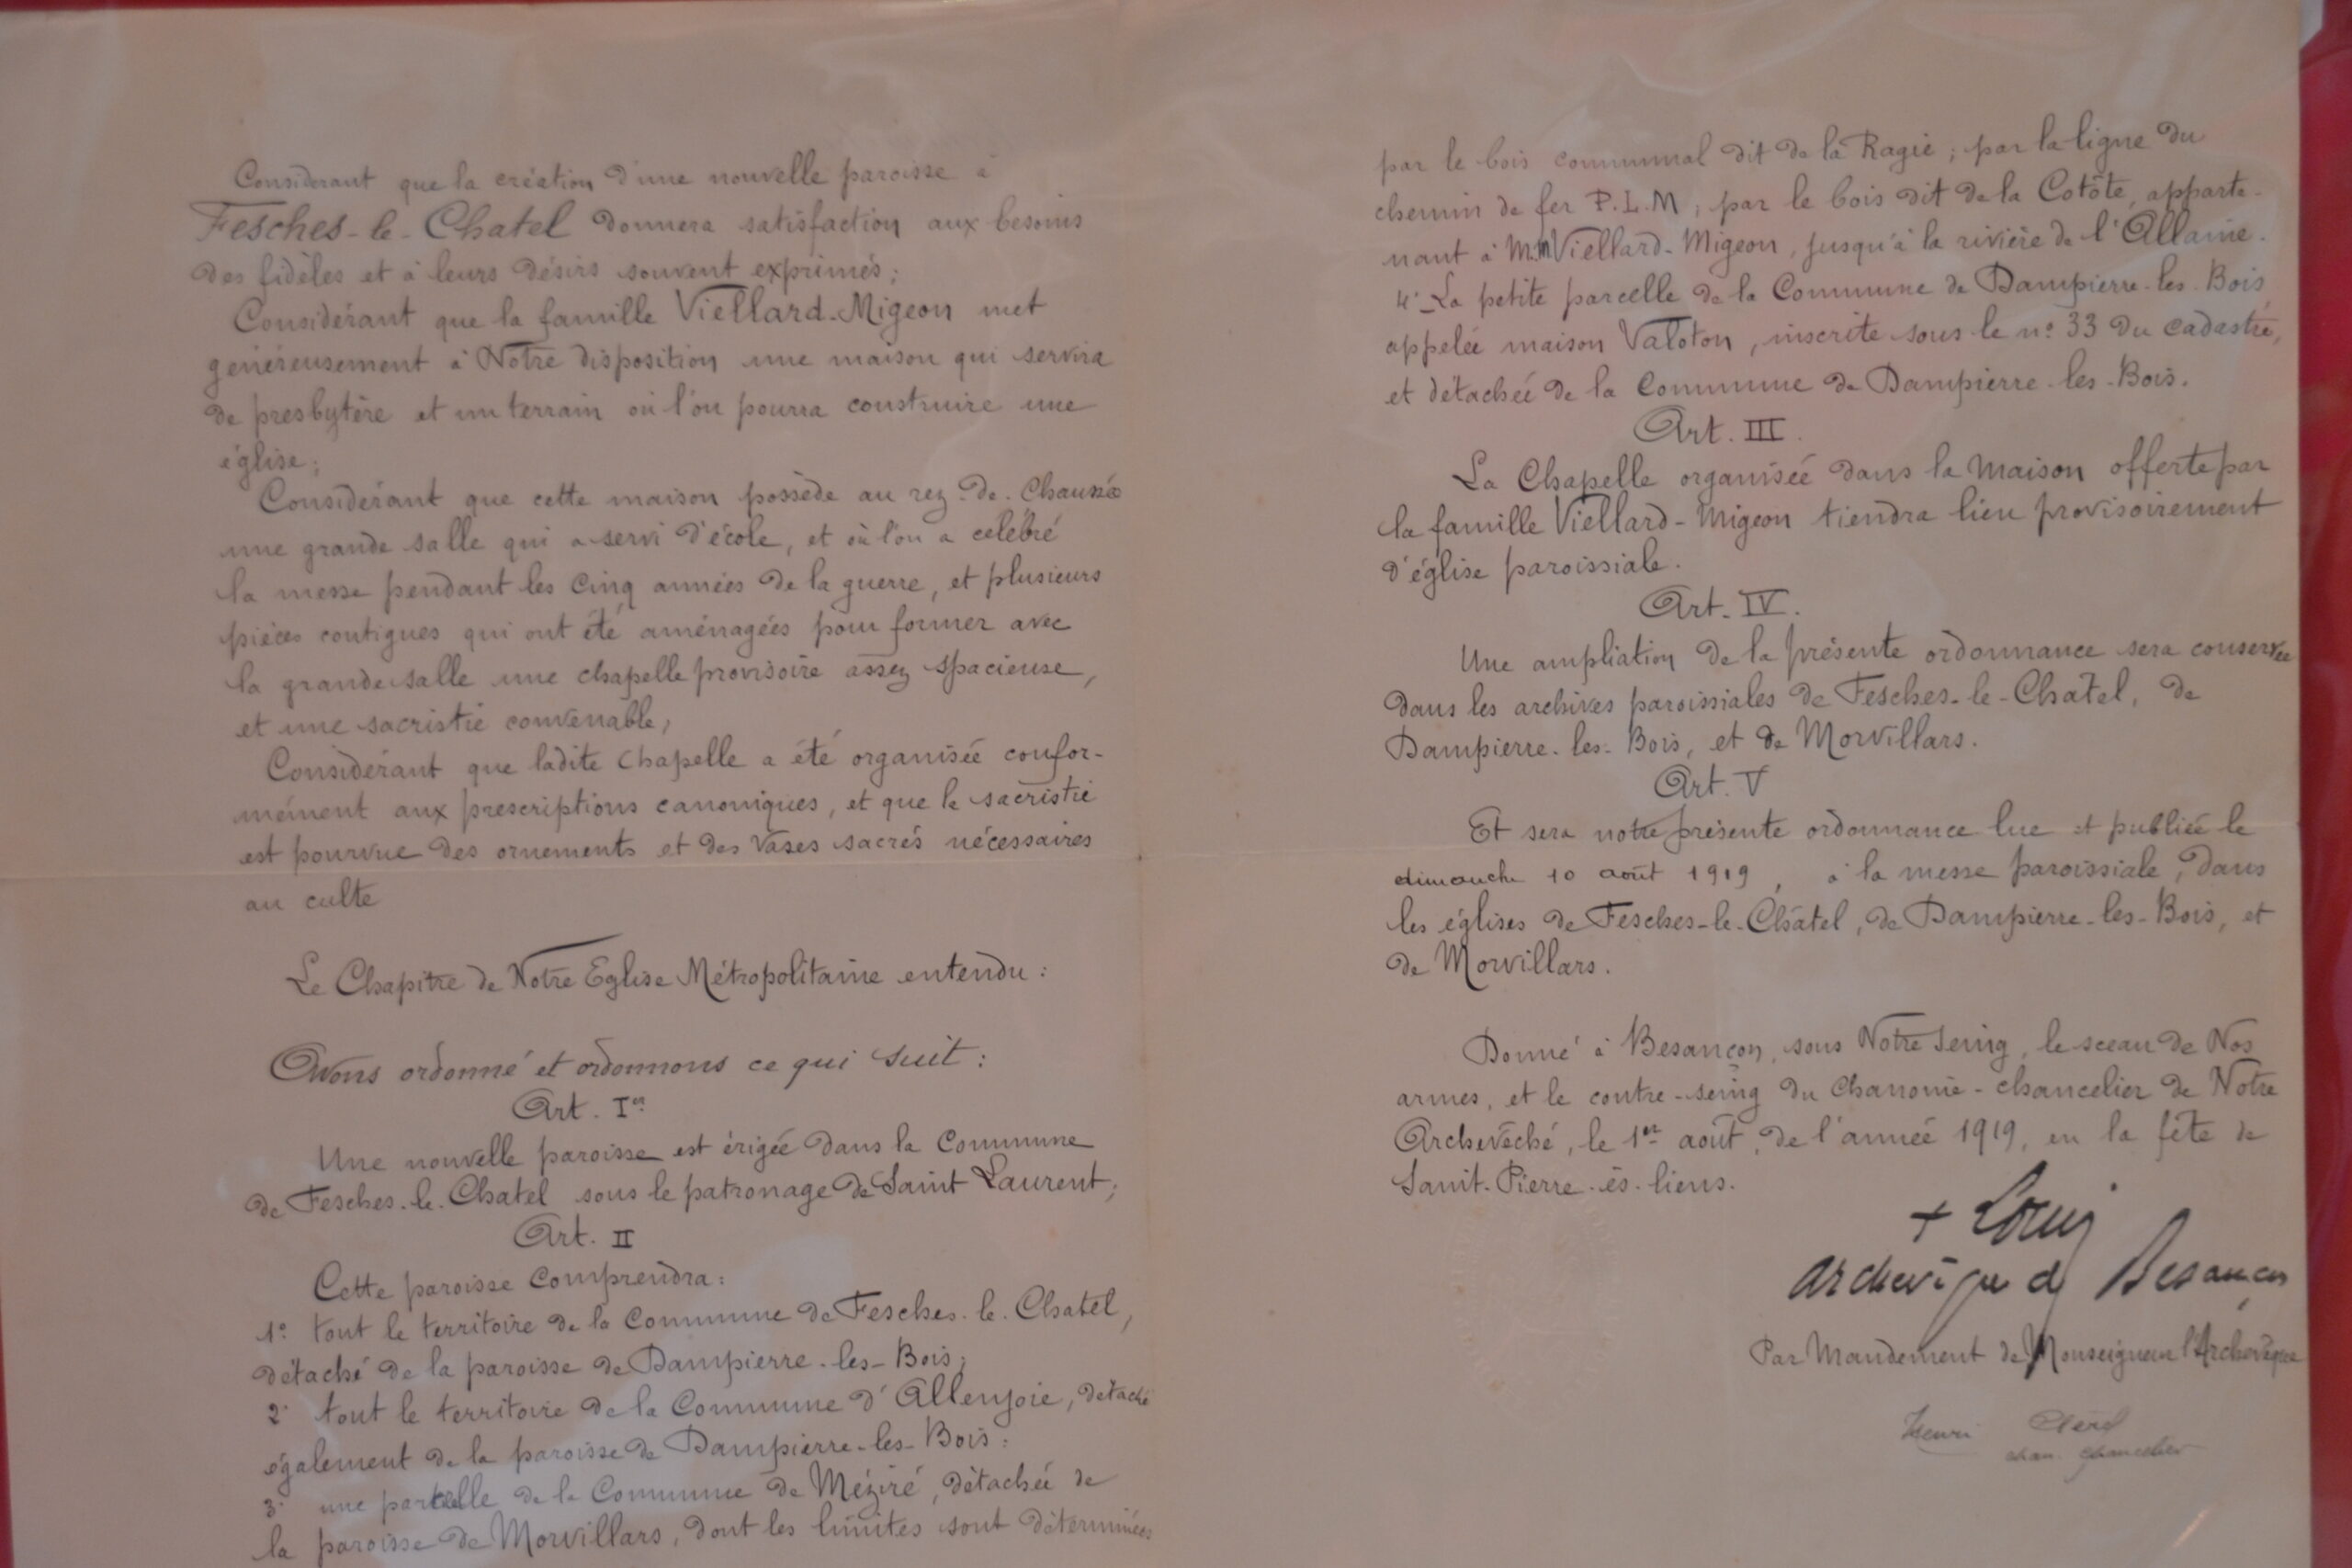 Considerant que la création d'une nouvelle paroisse à
Fesches-le-Chatel donnera satisfaction aux besoins
des fidèles et à leurs désirs souvent exprimés;
Considérant que la famille Viellard-Migeon met
généreusement à Notre disposition une maison qui servira
de presbytère et un terrain où l'on pourra construire une
église;
Considérant que cette maison possède au rez-de-Chaussée
une grande salle qui a servi d'école, et où l'on a célébré
la messe pendant les cinq années de la guerre, et plusieurs
pièces contigues qui ont été aménagées pour former avec
la grande salle une chapelle provisoire assez spacieuse,
et une sacristie convenable;
Considérant que ladite Chapelle a été organisée confor-
mément aux prescriptions canoniques, et que la sacristie
est pourvue des ornements et des Vases sacrés nécessaires
au culte
Le Chapitre de Notre Eglise Métropolitaine entendu:
Avons ordonné et ordonnons ce qui suit:
Art. Ier
Une nouvelle paroisse est érigée dans la Commune
de Fesches-le-Chatel sous le patronage de Saint Laurent;
Art. II
Cette paroisse Comprendra:
1° tout le territoire de la Commune de Fesches-le-Chatel,
détaché de la paroisse de Dampierre-les-Bois;
2° tout le territoire de la Commune d'Allenjoie, détaché
également de la paroisse de Dampierre-les-Bois;
3° une parcelle de la Commune de Méziré, détachée de
la paroisse de Morvillars, dont les limites sont déterminées
par le bois communal dit de la Ragie; par la ligne du
chemin de fer P.L.M; par le bois dit de la Cotôte, apparte-
nant à M.M Viellard-Migeon, jusqu'à la rivière de l'Allaine.
4° La petite parcelle de la Commune de Dampierre-les-Bois,
appelée maison Valoton, inscrite sous le n° 33 du cadastre,
et détachée de la Commune de Dampierre-les-Bois.
Art. III.
La Chapelle organisée dans la Maison offerte par
la famille Viellard-Migeon tiendra lieu provisoirement
d'église paroissiale.
Art. IV.
Une ampliation de la présente ordonnance sera conservée
dans les archives paroissiales de Fesches-le-Chatel, de
Dampierre-les-Bois, et de Morvillars.
Art. V
Et sera notre présente ordonnance lue et publiée le
dimanche 10 août 1919, à la messe paroissiale, dans
les églises de Fesches-le-Châtel, de Dampierre-les-Bois, et
de Morvillars.
Donné à Besançon, sous Notre Seing, le sceau de Nos
armes, et le contre-seing du Chanoine-chancelier de Notre
Archevêché, le 1er août, de l'année 1919, en la fête de
Saint-Pierre-ès-liens.
+ Louis
Archevêque de Besançon
Par Mandement de Monseigneur l'Archevêque
Henri
chan. chancelier